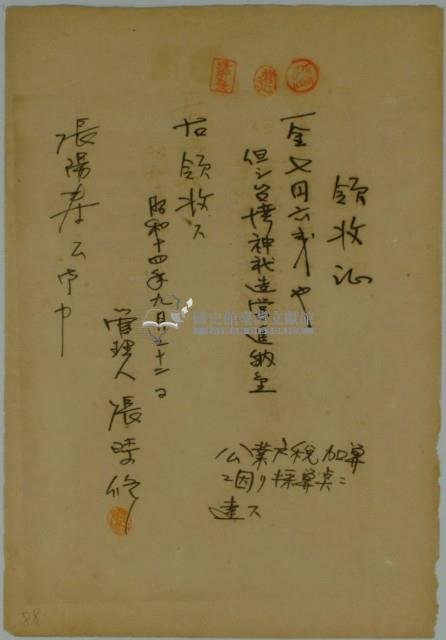 領收証
一金七円六
但シ台湾神社造営進納金
右領收ス
昭和十四年九月二十二日
管理人 張
張陽春公 中
公業戸税加算
ニ因リ採算ニ
達ス
國史館臺灣文獻館
88